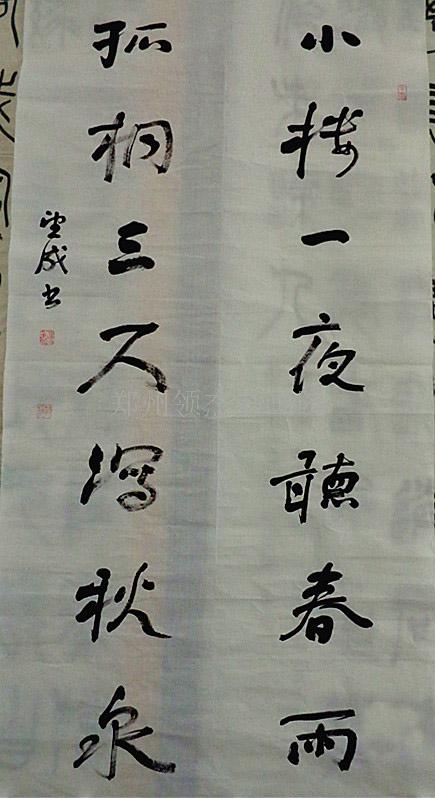 小楼一夜聽春雨
孤桐三尺瀉秋泉
成书
郑州领